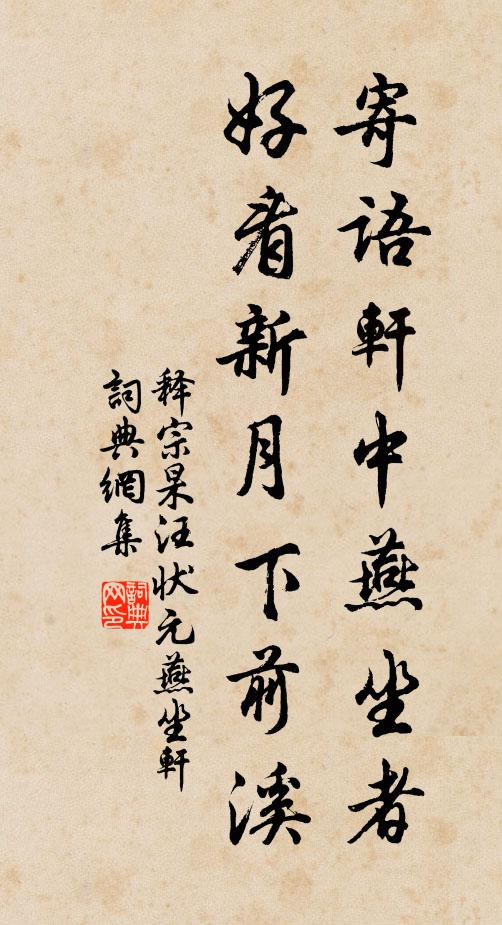 寄語軒中燕坐者
好看新月下前溪
释宗杲汪状元燕坐軒
詞典網集
詞典网印